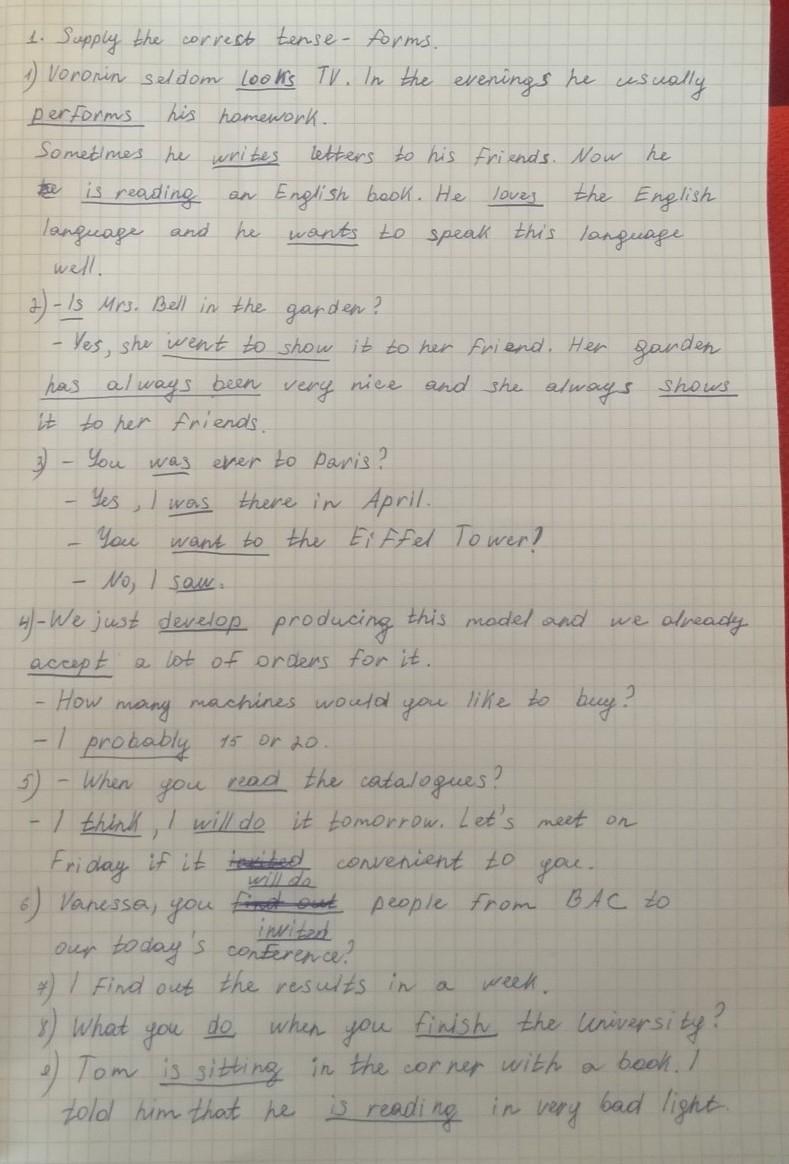 1. Supply the correct tense - forms.
1) Voronin seldom looks TV. In the evenings he usually
performs his homework.
Sometimes he writes letters to his friends. Now he
is reading an English book. He loves the English
language and he wants to speak this language
well.
2) - Is Mrs. Bell in the garden?
- Yes, she went to show it to her friend. Her garden
has always been very nice and she always shows
it to her friends.
3) - You was ever to Paris?
- Yes, I was there in April.
- You want to the Eiffel Tower?
- No, I saw.
4) - We just develop producing this model and we already
accept a lot of orders for it.
- How many machines would you like to buy?
- I probably 15 or 20.
5) - When you read the catalogues?
- I think, I will do it tomorrow. Let's meet on
Friday if it invited convenient to you.
will do
6) Vanessa, you find out people from BAC to
invited
our today's conference?
7) I find out the results in a week.
8) What you do when you finish the university?
9) Tom is sitting in the corner with a book. I
told him that he is reading in very bad light.